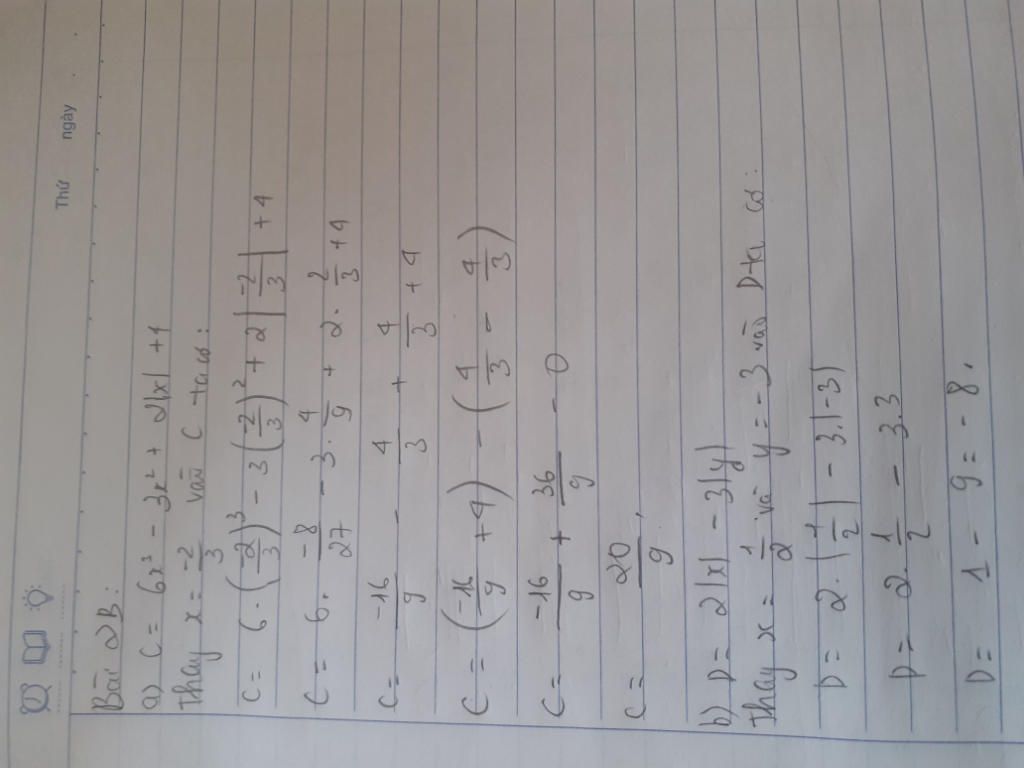 Thứ ngày
Bài 2B:
a) C = 6x³ - 3x² + 2|x| + 4
Thay x = -2/3 vào C ta có:
C = 6 · (-2/3)³ - 3(-2/3)² + 2|-2/3| + 4
C = 6 · -8/27 - 3 · 4/9 + 2 · 2/3 + 4
C = -16/9 - 4/3 + 4/3 + 4
C = (-16/9 + 4) - (4/3 - 4/3)
C = -16/9 + 36/9 - 0
C = 20/9,
b) D = 2|x| - 3|y|
Thay x = 1/2 và y = -3 vào D ta có:
D = 2 · |1/2| - 3.|-3|
D = 2 · 1/2 - 3.3
D = 1 - 9 = -8,